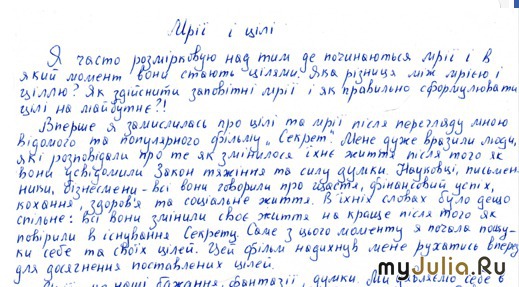 Мрії і цілі
Я часто розмірковую над тим де починаються мрії і в
який момент вони стають цілями. Яка різниця між мрією і
ціллю? Як здійснити заповітні мрії і як правильно сформулювати
цілі на майбутнє?!
Вперше я замислилась про цілі та мрії після перегляду мною
відомого та популярного фільму „Секрет". Мене дуже вразили люди,
які розповідали про те як змінилося їхнє життя після того як
вони усвідомили Закон тяжіння та силу думки. Науковці, письмен-
ники, бізнесмени - всі вони говорили про щастя, фінансовий успіх,
кохання, здоров'я та соціальне життя. В їхніх словах було дещо
спільне: всі вони змінили своє життя на краще після того як
повірили в існування Секрету. Саме з цього моменту я почала пошу-
ки себе та своїх цілей. Цей фільм надихнув мене рухатись вперед
для досягнення поставлених цілей.
наші бажання, фантазії, думки. Ми уявляємо себе в
myJulia.Ru